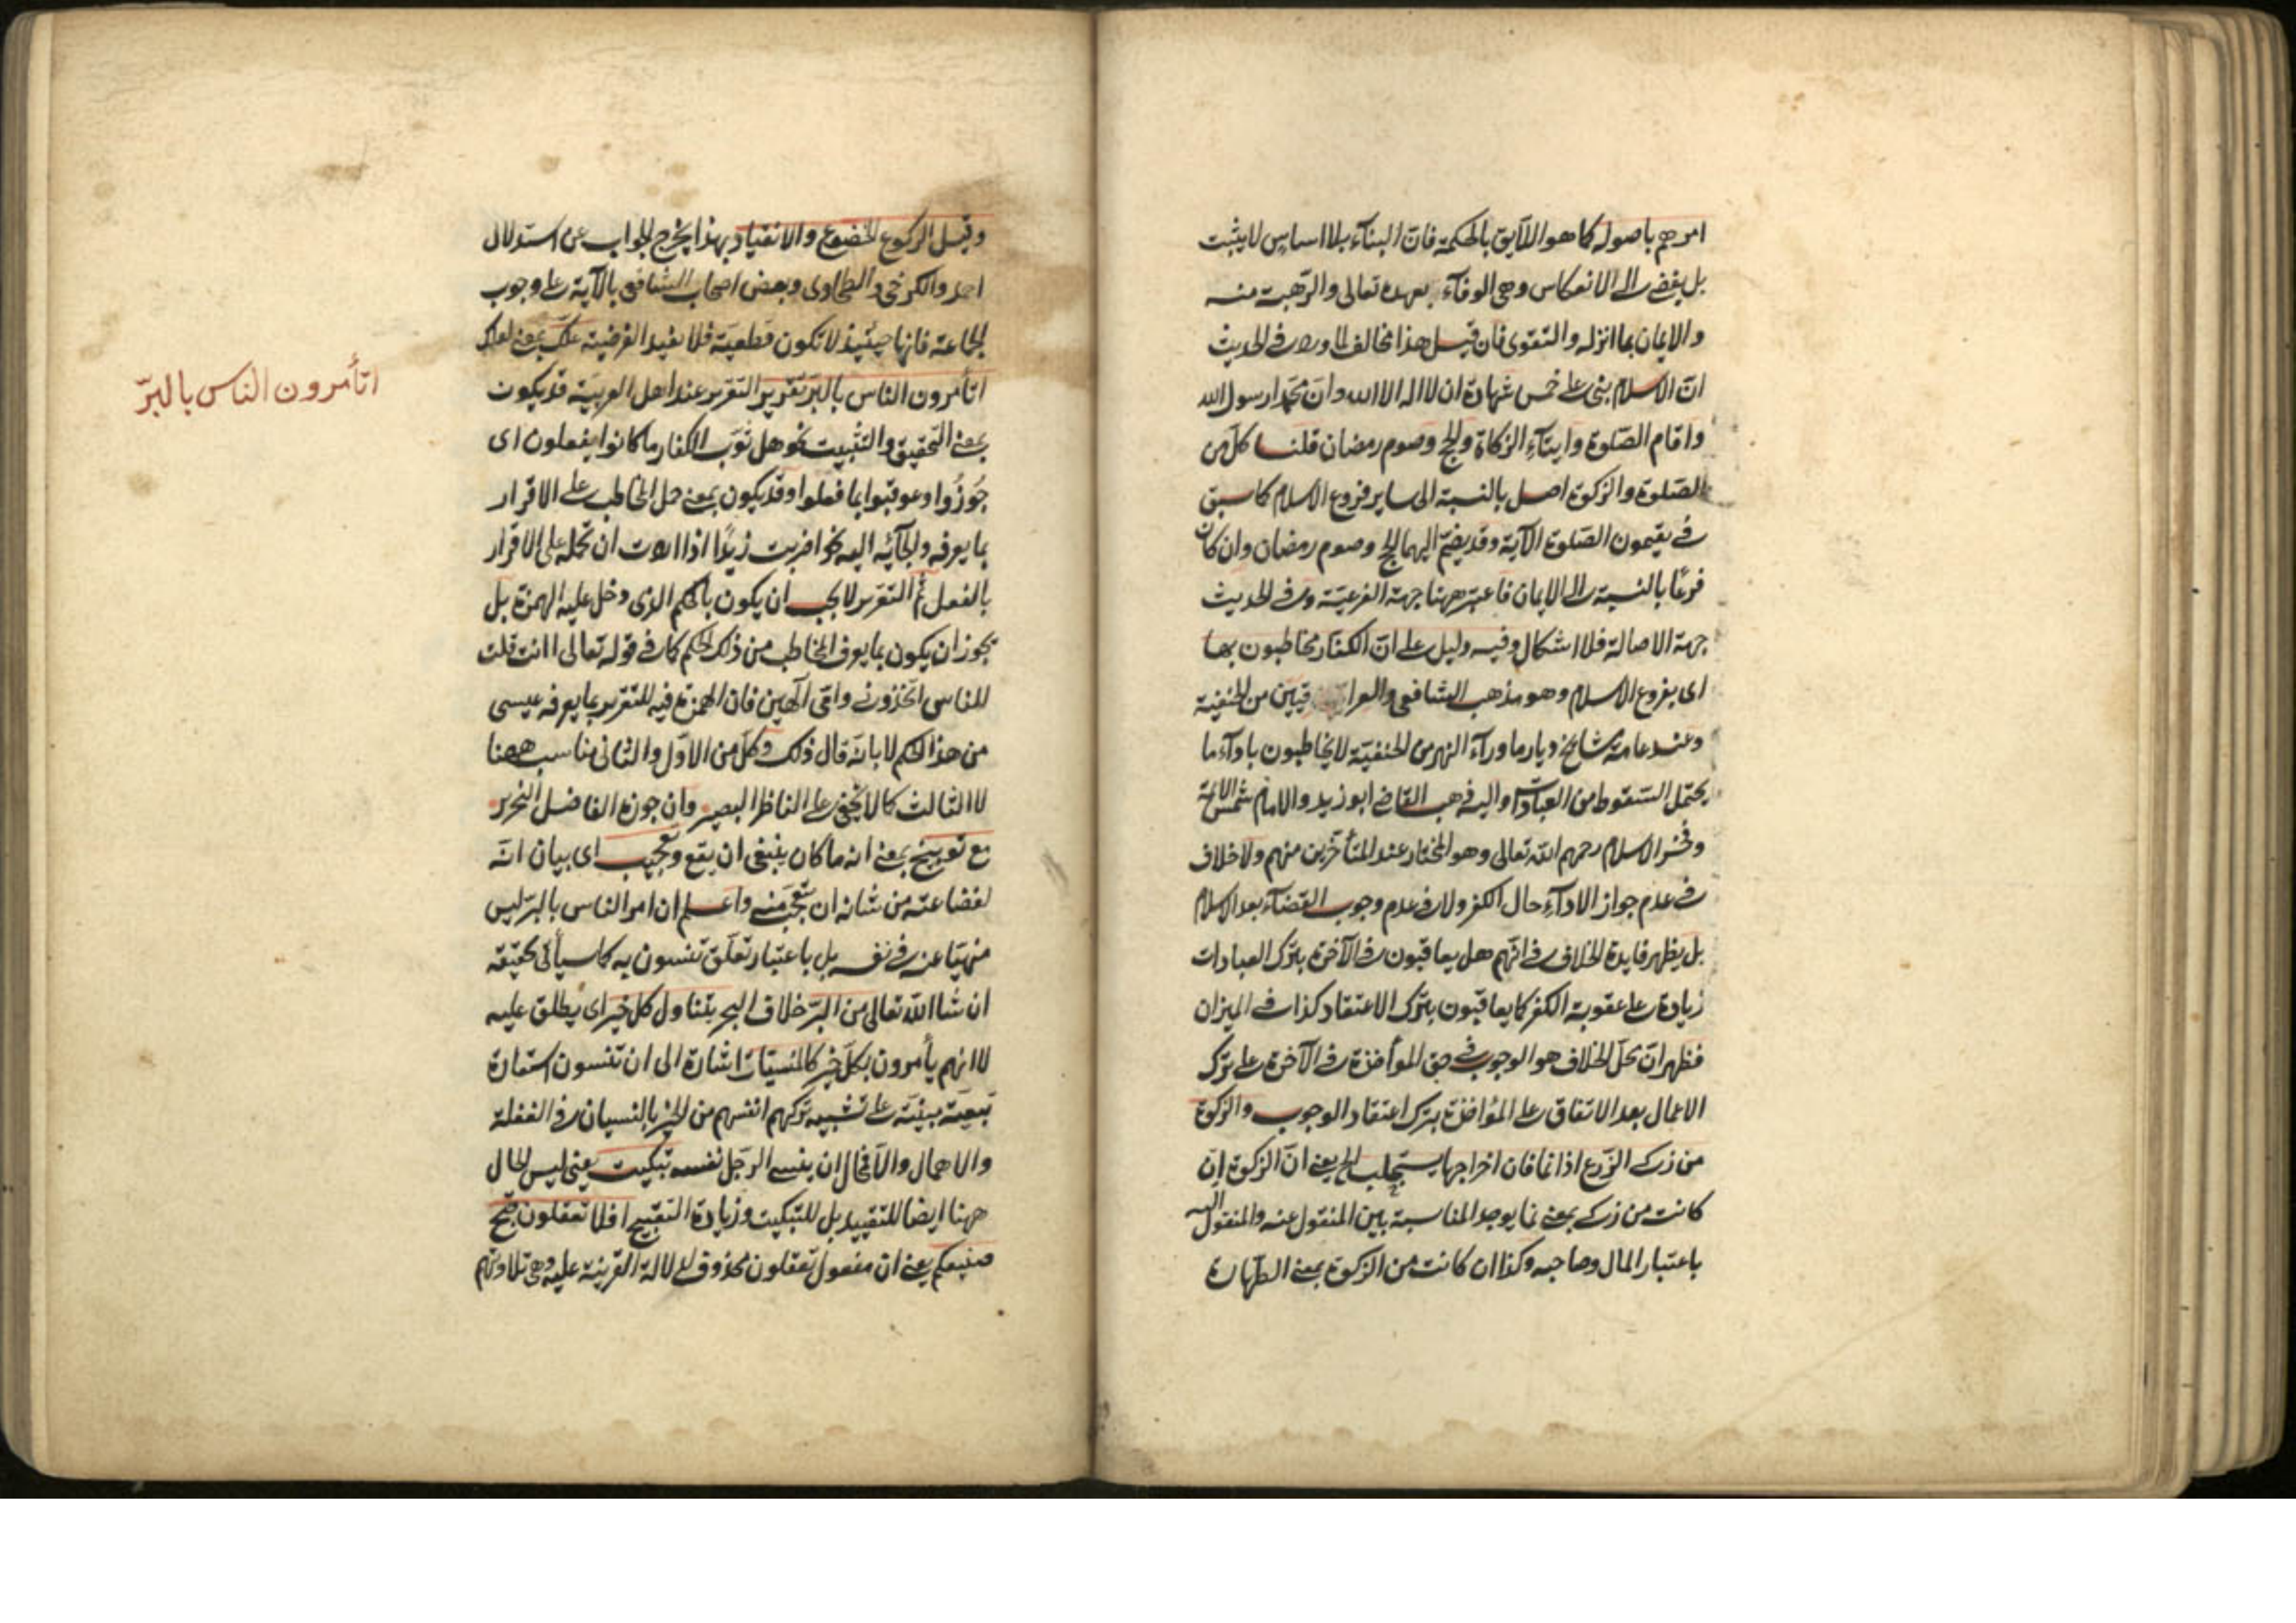 امرهم باصوله كما هو اللايق بالحكمة فان البناء بلا اساس لا يثبت
بل يفضى الى الانعكاس وهى الوفاء بعهده تعالى والرهبة منه
والايمان بما انزله والتقوى فان قيل هذا مخالف لما ورد فى الحديث
ان الاسلام بنى على خمس شهادة ان لا اله الا الله وان محمدا رسول الله
واقام الصلوة وايتاء الزكاة والحج وصوم رمضان قلنا كل من
الصلوة والزكوة اصل بالنسبة الى ساير فروع الاسلام كما سبق
فى يقيمون الصلوة الآية وقد يضم اليهما الحج وصوم رمضان وان كان
فرعا بالنسبة الى الايمان فاعتبر ههنا جهة الفرعية وفى الحديث
جهة الاصالة فلا اشكال وفيه دليل على ان الكفار مخاطبون بها
اى بفروع الاسلام وهو مذهب الشافعى والعراقيين من الحنفية
وعند عامة مشايخ ديار ما وراء النهر من الحنفية لا يخاطبون باداء ما
يحتمل السقوط من العبادات واليه ذهب القاضى ابو زيد والامام شمس الائمة
وفخر الاسلام رحمهم الله تعالى وهو المختار عند المتأخرين منهم ولا خلاف
فى عدم جواز الاداء حال الكفر ولا فى عدم وجوب القضاء بعد الاسلام
بل يظهر فايدة الخلاف فى انهم هل يعاقبون فى الآخرة بترك العبادات
زيادة على عقوبة الكفر كما يعاقبون بترك الاعتقاد كذا فى الميزان
فظهر ان محل الخلاف هو الوجوب فى حق المؤاخذة فى الآخرة على ترك
الاعمال بعد الاتفاق على المؤاخذة بترك اعتقاد الوجوب والزكوة
من زكى الزرع اذا نما فان اخراجها يستجلب الخ يعنى ان الزكوة ان
كانت من زكى بمعنى نما يوجد المناسبة بين المنقول عنه والمنقول اليه
باعتبار المال وصاحبه وكذا ان كانت من الزكوة بمعنى الطهارة
وقيل الركوع الخضوع والانقياد بهذا يخرج الجواب عن استدلال
احمد والكرخى والطحاوى وبعض اصحاب الشافعى بالآية على وجوب
الجماعة فانها حينئذ لا تكون قطعية فلا يفيد الفرضية علك بمعنى لعلك
اتأمرون الناس بالبر تقرير التقرير عند اهل العربية قد يكون
بمعنى التحقيق والتثبيت نحو هل ثوب الكفار ما كانوا يفعلون اى
جوزوا وعوقبوا بما فعلوا وقد يكون بمعنى حمل المخاطب على الاقرار
بما يعرفه والجائه اليه نحو اضربت زيدا اذا اردت ان تحمله على الاقرار
بالفعل ثم التقرير لا يجب ان يكون بالحكم الذى دخل عليه الهمزة بل
يجوز ان يكون بما يعرف المخاطب من ذلك الحكم كما فى قوله تعالى اانت قلت
للناس اتخذونى وامى آلهين فان الهمزة فيه للتقرير بما يعرفه عيسى
من هذا الحكم لا بانه قال ذلك وكل من الاول والثانى مناسب ههنا
لا الثالث كما لا يخفى على الناظر البصير وان جوزه الفاضل النحرير
مع توبيخ بمعنى انه ما كان ينبغى ان يقع وتعجيب اى بيان انه
لفضاعته من شانه ان يتعجب منه واعلم ان امر الناس بالبر ليس
منهيا عنه فى نفسه بل باعتبار تعلق تنسون به كما سيأتى تحقيقه
ان شا الله تعالى من البر خلاف البحر يتناول كل خير اى يطلق عليه
لا انهم يأمرون بكل خير كالمنسيات اشارة الى ان تنسون استعارة
تبعية مبنية على تشبيه تركهم انفسهم من الخير بالنسيان فى الغفلة
والاهمال والا فمحال ان ينسى الرجل نفسه تبكيت يعنى ليس الحال
ههنا ايضا للتقييد بل للتبكيت وزيادة التقبيح افلا تعقلون قبح
صنيعكم يعنى ان مفعول تعقلون محذوف لدلالة القرينة عليه وهى تلاوتهم
اتأمرون الناس بالبر